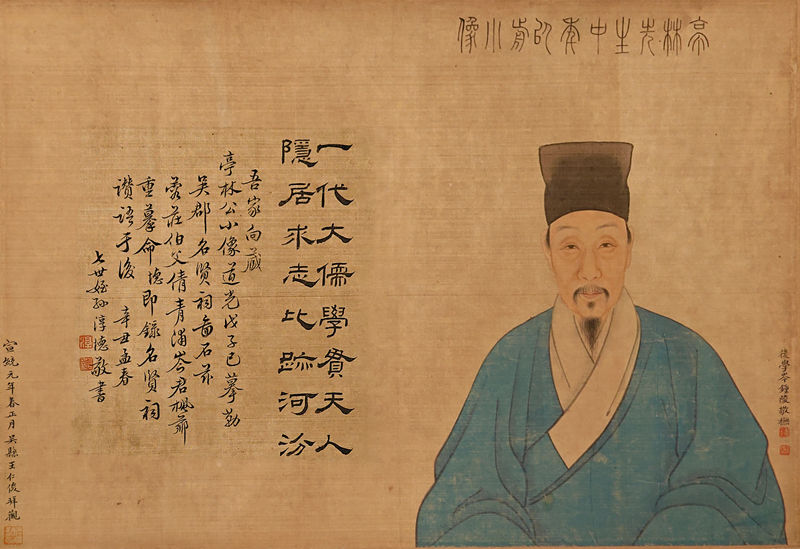 亭林先生中年以前小像
一代大儒學貫天人
隱居求志比跡河汾
吾家向藏
亭林公小像道光戊子已摹勒
吳郡名賢祠畫石茲
蓉莊伯父倩青浦岑君楓薌
重摹命 即錄名賢祠
讚語于後 辛丑孟春
七世姪孫淳德敬書
宣統元年春正月吳縣王仁俊拜觀
後學岑鍾陵敬橅